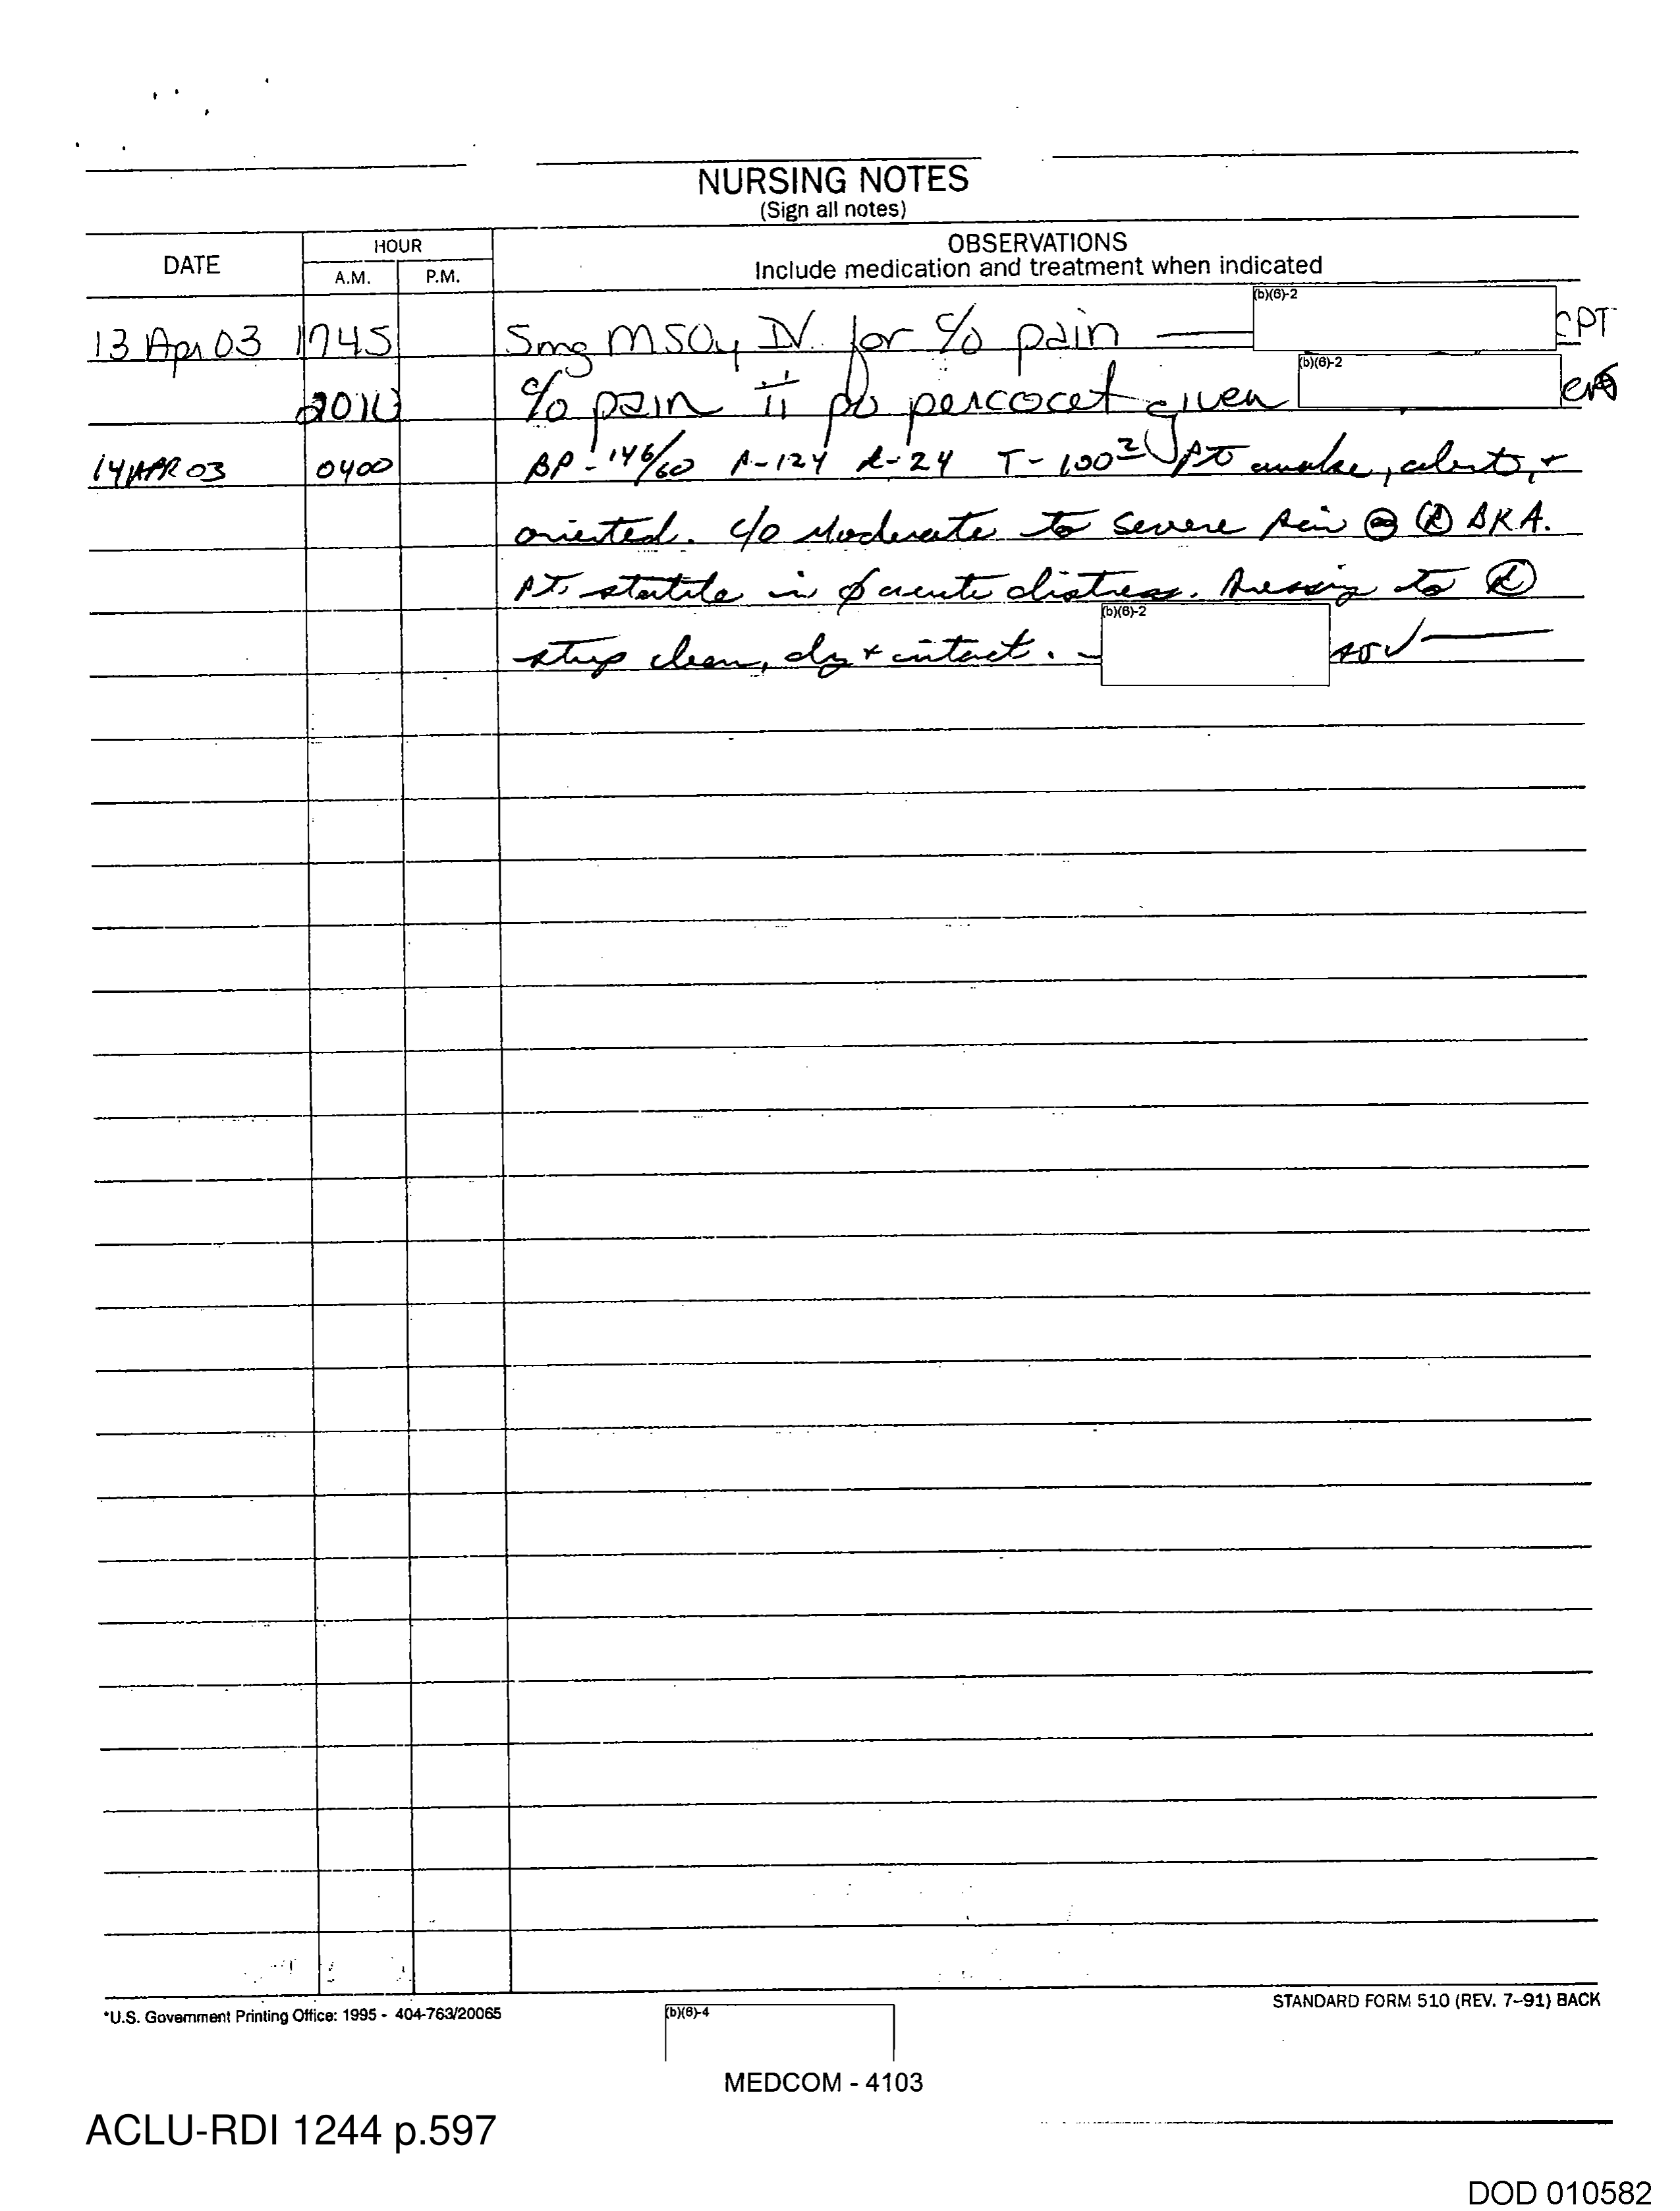 NURSING NOTES
(Sign all notes)
DATE
HOUR
A.M.
P.M.
OBSERVATIONS
Include medication and treatment when indicated
(b)(6)-2
13 Apr 03 1745 5mg MSO4 IV for c/o pain CPT
(b)(6)-2
2010 c/o pain ii po percocet given
14 APR 03 0400 BP-146/60 P-124 R-24 T-100² Pt awake, alert, +
oriented. c/o Moderate to severe pain @ (R) BKA.
Pt. in ø acute distress. Dressing to (R)
(b)(6)-2
stump clean, dry + intact.
*U.S. Government Printing Office: 1995 - 404-763/20065
STANDARD FORM 510 (REV. 7-91) BACK
(b)(6)-4
MEDCOM - 4103
ACLU-RDI 1244 p.597
DOD 010582